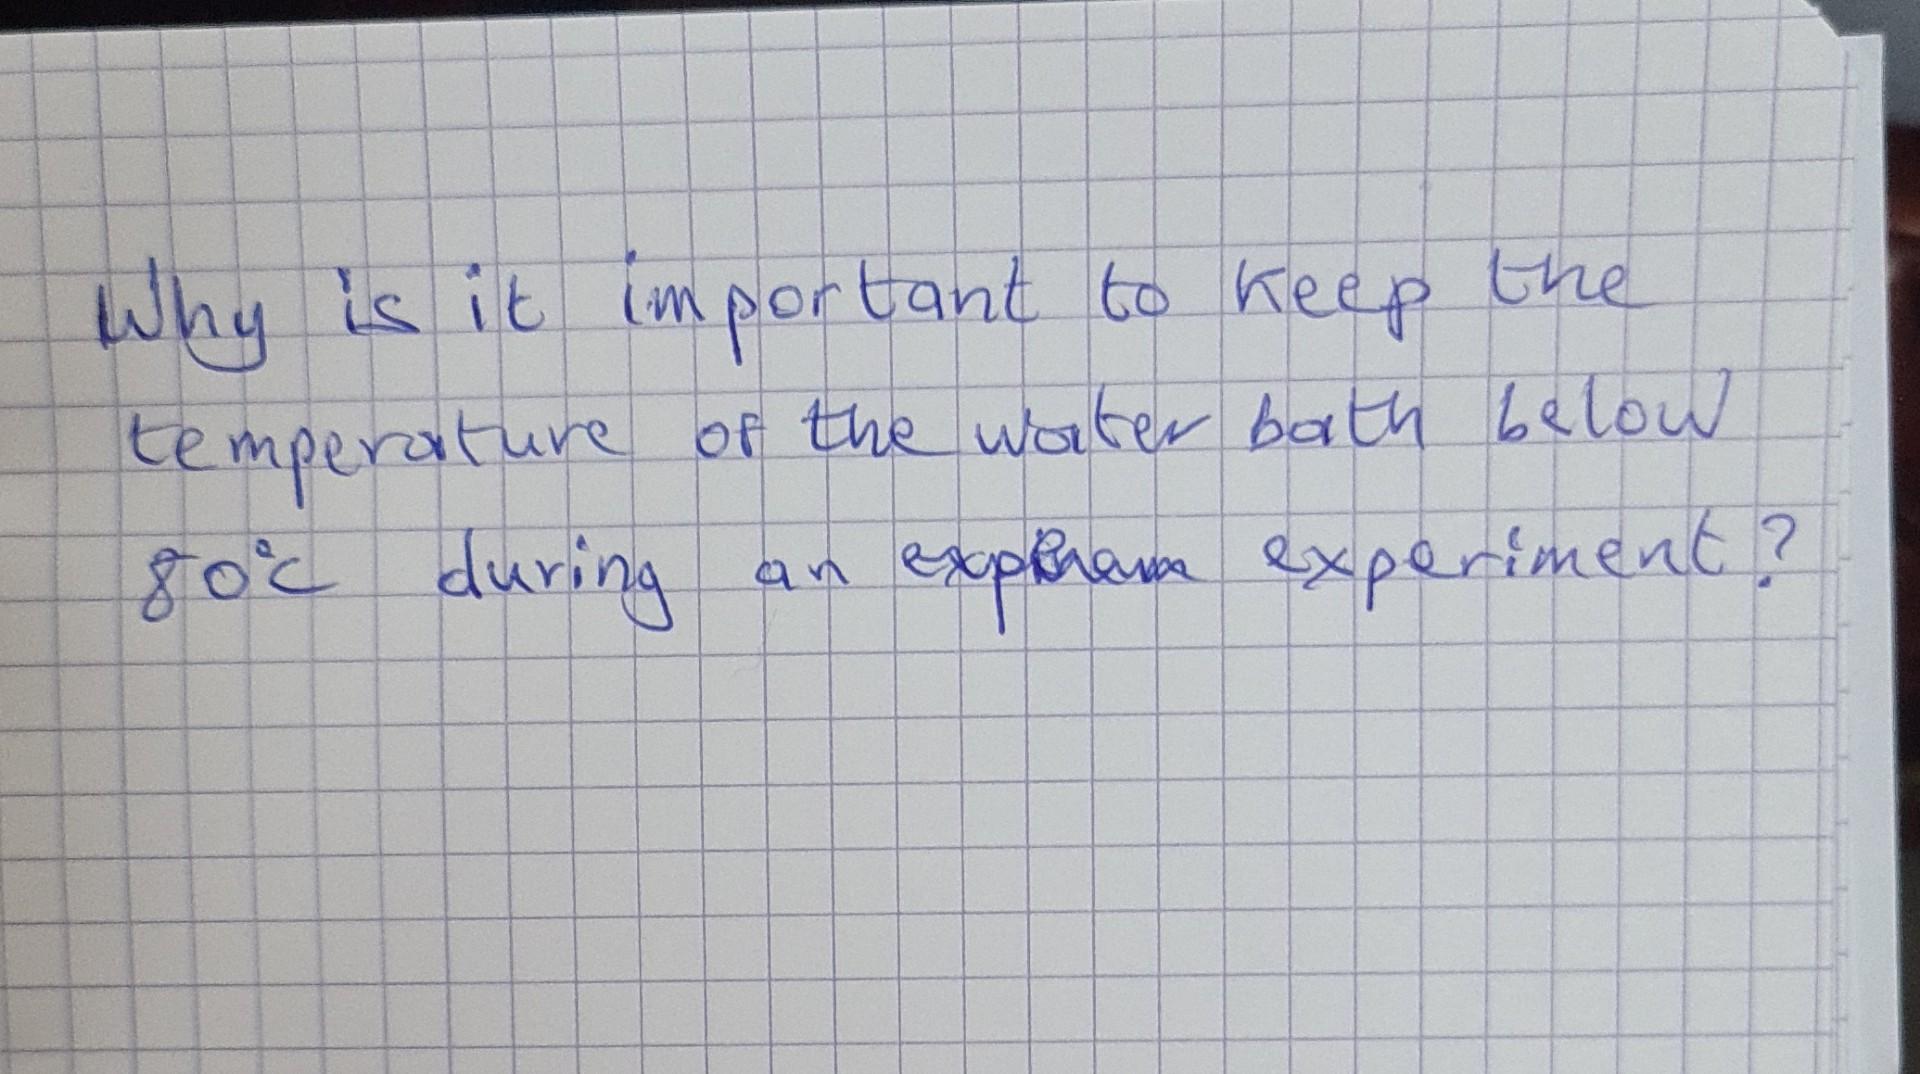 Why is it important to keep the
temperature of the water bath below
80°C during an experiment?